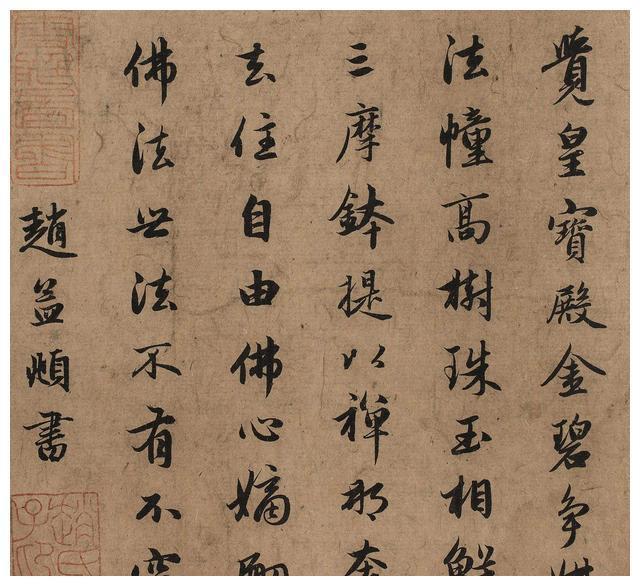 覺皇寶殿金碧爭
法幢高樹珠玉相鮮
三摩鉢提以禪那
去住自由佛心嫡
佛法世法不有不空
趙孟頫書
趙氏子